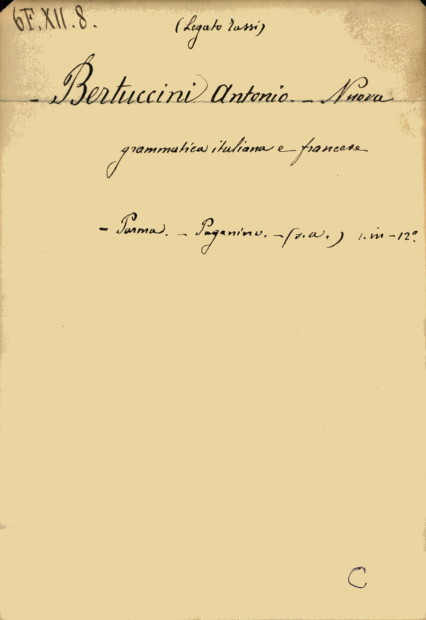 6F.XII.8.
(Legato Tassi)
- Bertuccini Antonio. - Nuova
grammatica italiana e francese
- Parma. - Paganino. - (s.a.) 1. in - 12º.
C